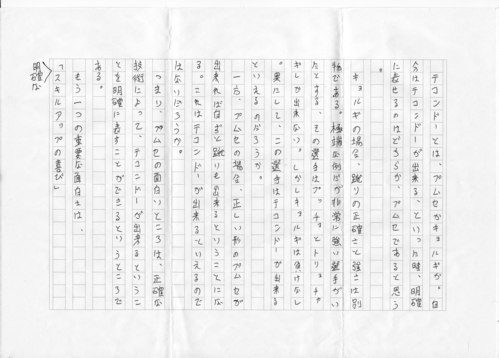 テコンドーとは、プムセかキョルギか。自
分はテコンドーが出来る、といった時、明確
に表せるかはどちらか、プムセであると思う
。
キョルギの場合、蹴りの正確さと強さは別
物である。極端な例だが非常に強い選手がい
たとする、その選手はアッチョとトリョチャ
ギしか出来ない。しかしキョルギは負けなし
。果にして、この選手はテコンドーが出来る
といえるのだろうか。
一方、プムセの場合、正しい形のプムセが
出来れば自ずと蹴りも出来るということにな
る。これはテコンドーが出来るといえるので
はないだろうか。
つまり、プムセの面白いところは、正確な
技術によって、テコンドーが出来るというこ
とを明確に表すことができるというところで
ある。
もう一つの重要な面白さは、
「スキルアップの喜び」
明確な